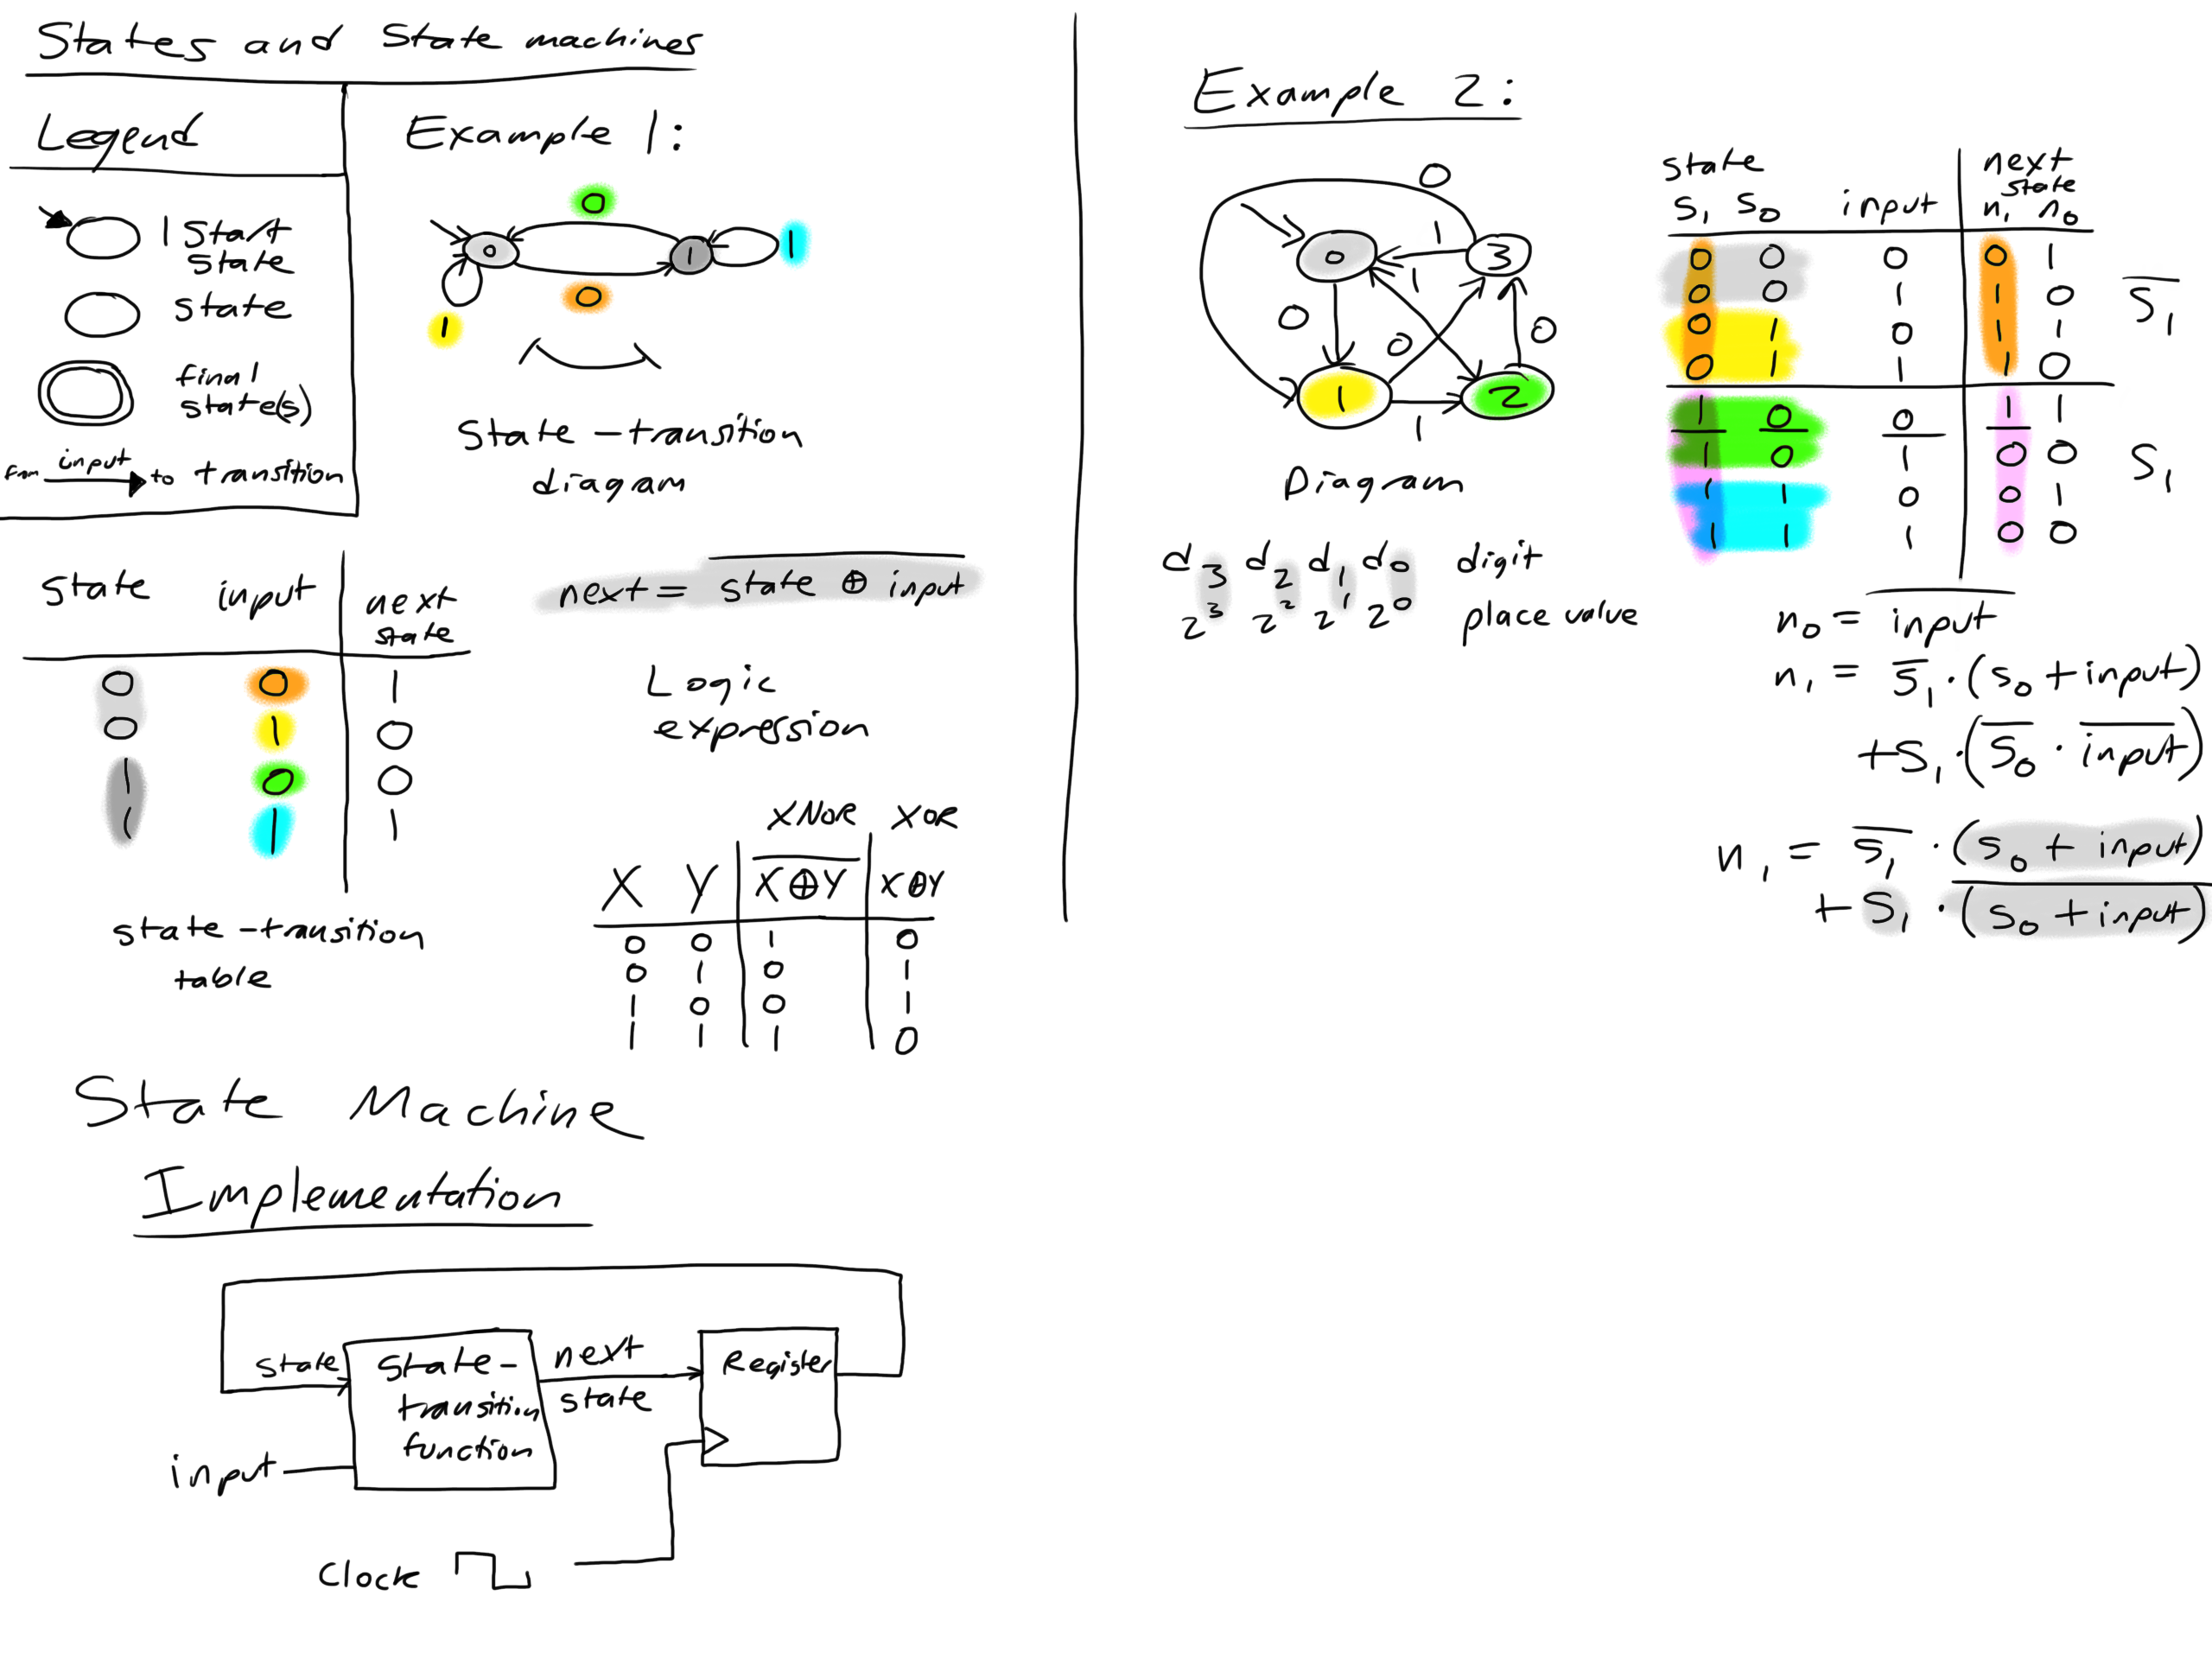 States and State machines
Legend
1 Start
state
state
final
state(s)
from input to transition
Example 1:
0
0 1 1
0
1
State-transition
diagram
state input next
state
0 0 1
0 1 0
1 0 0
1 1 1
state-transition
table
next = \overline{state ⊕ input}
Logic
expression
XNOR XOR
X Y \overline{X⊕Y} X⊕Y
0 0 1 0
0 1 0 1
1 0 0 1
1 1 1 0
State Machine
Implementation
state
State-
transition
function
next
state
Register
input
Clock
Example 2:
0
0 1 3
1
0 0 0
1 2
1
Diagram
d₃ d₂ d₁ d₀ digit
2³ 2² 2¹ 2⁰ place value
state next
state
S₁ S₀ input n₁ n₀
0 0 0 0 1
0 0 1 1 0
0 1 0 1 1
0 1 1 1 0
\overline{S₁}
1 0 0 1 1
1 0 1 0 0
1 1 0 0 1
1 1 1 0 0
S₁
n₀ = \overline{input}
n₁ = \overline{S₁}·(S₀ + input)
+S₁·(\overline{S₀}·\overline{input})
n₁ = \overline{S₁}·(S₀ + input)
+ S₁·\overline{(S₀ + input)}